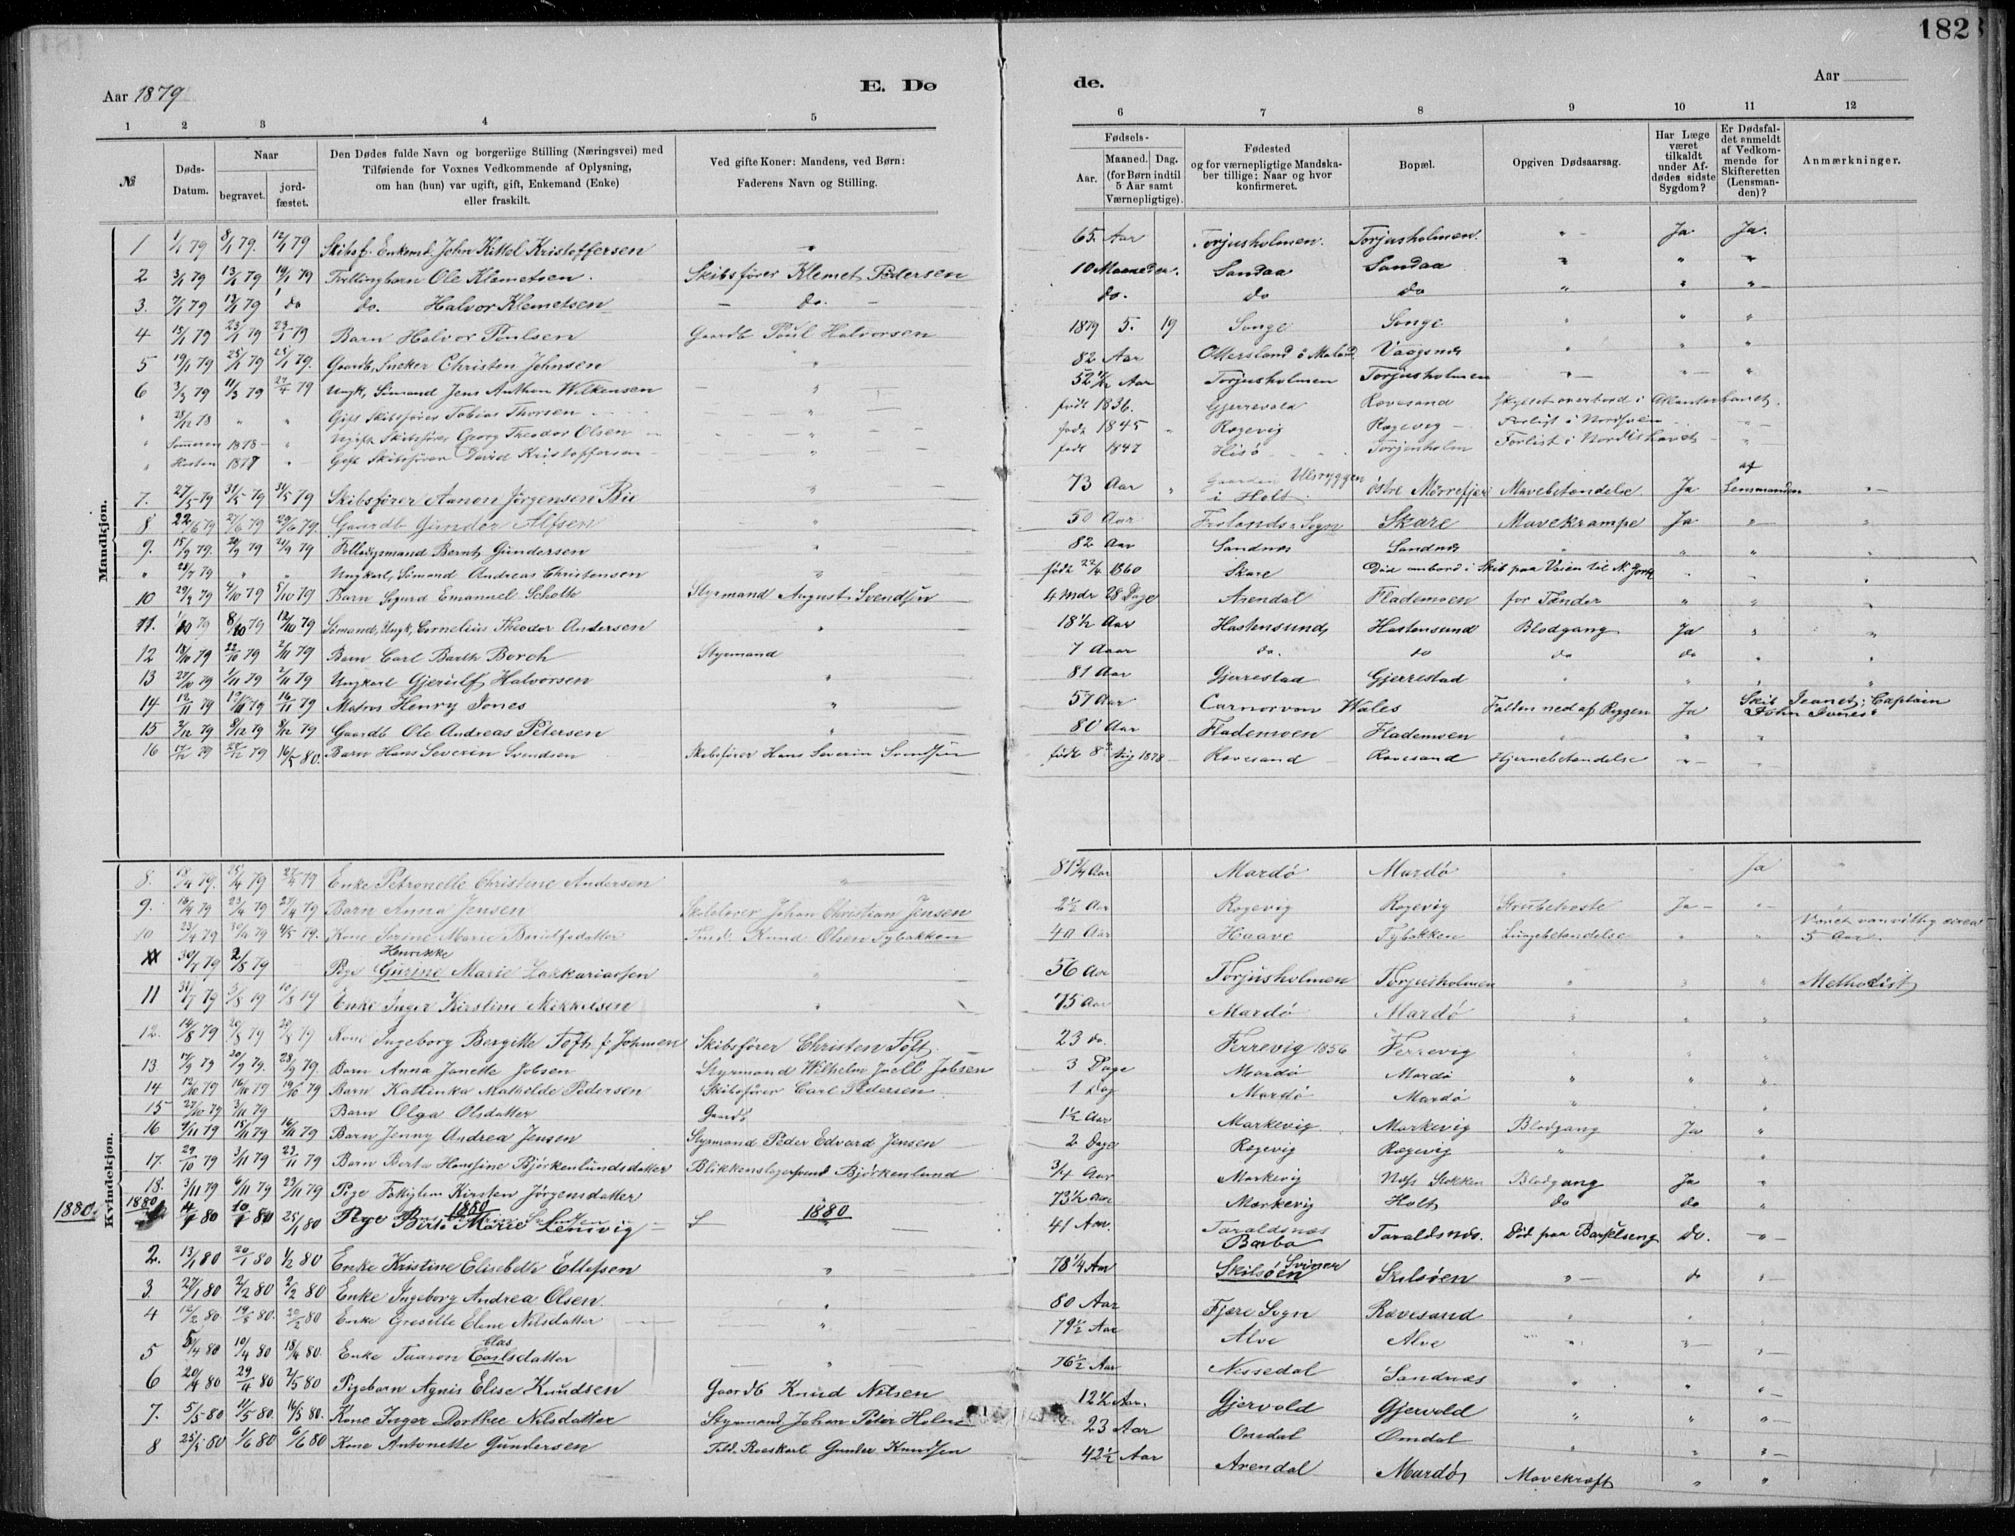 182
Aar 1879
E. Dø
de.
Aar
1 2 3 4 5 6 7 8 9 10 11 12
№
Døds-Datum.
Naar
begravet.
jord-fæstet.
Den Dødes fulde Navn og borgerlige Stilling (Næringsvei) med
Tilføiende for Voxnes Vedkommende af Oplysning,
om han (hun) var ugift, gift, Enkemand (Enke)
eller fraskilt.
Ved gifte Koner: Mandens, ved Børn:
Faderens Navn og Stilling.
Fødsels-
Aar.
Maaned. Dag.
(for Børn indtil
5 Aar samt
Værnepligtige).
Fødested
og for værnepligtige Mandska-
ber tillige: Naar og hvor
konfirmeret.
Bopæl.
Opgiven Dødsaarsag.
Har Læge
været
tilkaldt
under Af-
dødes sidste
Sygdom?
Er Dødsfal-
det anmeldt
af Vedkom-
mende for
Skifteretten
(Lensman-
den)?
Anmærkninger.
Mandkjøn.
1 1/1 79 8/1 79. 12/1 79 Skibsf. Enkemd. John Kittel Kristoffersen " 65 Aar Torjusholmen. Torjusholmen. " Ja Ja.
2 3/1 79 13/1 79 19/1 79 Tvillingbarn Ole Klemetsen. Skibsfører Klemet Pedersen 10 Maaneder. Sandaa Sandaa " " "
3. 7/1 79 13/1 79 do do. Halvor Klemetsen do. do. do do " " "
4 13/1 79 23/1 79 79 Barn Halvor Poulsen Gaardb Poul Halvorsen 1879 5. 19 Songe Songe " " "
5 19/1 79 25/1 79 25/1 79. Gaardb, Enker Christen Johnsen " 82 Aar Ottersland Vaagsnes " " "
6 3/3 79 11/3 79 79 Ungk, Sömand Jens Anthon Wilkensen " 52 Aar Torjusholmen Torjusholmen " " "
" 78 " " Gift Skibsfører Tobias Thorsen født 1836. Gjerrevold Ravesand skyllet overbord i Atlanterhavet.
" Sommeren 1878 " Ugift Skibsfører Georg Theodor Olsen " født 1845 " Ragevig Ragevig Forligt i
" Høsten 1877 " Gift Skibsfører David Kristoffersen " født 1847 Hisö Torjusholm Forlist i Nordishavet
7. 27/5 79 31/5 79 31/5 79 Skibsfører Aanon Jörgensen Bie " 73 Aar " Gaarden Ulsryggen i Holt. östre Mörrefjær Mavebetændelse Ja af Lensmanden "
8 22/6 79 27/6 79 29/6 79. Gaardb Gunder Alfsen " 50 Aar Frolands Sogn Skare Mavekrampe Ja " "
9. 15/9 79. 20/9 79 21/9 79 Fellodsmand Bernt Gundersen " 82 Aar Sandnes Sandnes " " " "
" 79 " " Ungkarl, Sömand Andreas Christensen " født 22/4 1860 Skare Död ombord i Skib paa Veien til N. York " "
10 29/9 79 4/10 79 5/10 79 Barn Sigurd Emanuel Scholte Styrmand August Svendsen 4 Mdr 28 Dage Arendal Flademoen for Tænder " " "
11. 1/10 79 8/10 79 12/10 79 Sömand, Ungk, Cornelius Theodor Andersen " 18½ Aar Hastensund, Hastensund Blodgang Ja " "
12 79 22/10 79 2/11 79 Barn Carl Barth Borch Styrmand 7 Aar do. do do do " "
13 27/10 79 1/11 79 2/11 79 Ungkarl Gjerulf Halvorsen " 81 Aar Gjerrestad Gjerrestad " " " "
14 12/11 79 79 16/11 79 Matros Henry Jones " 57 Aar Carnorvon Wales Falden ned af Ryggen Ja Skib Jeanet; Captain John Jones.
15 3/12 79 8/12 79 8/12 79 Gaardb Ole Andreas Petersen " 80 Aar Flademoen Flademoen " " "
16 17/12 79 79 16/5 80. Barn Hans Severin Svendsen Skibsfører Hans Severin Svendsen født 8de Aug 1878 Ravesand Ravesand Hjernebetændelse " "
Kvindekjøn.
8. 18/4 79. 25/4 79 27/4 79 Enke Petronelle Christine Andersen " 81¾ Aar Mardö Mardö " Ja "
9. 16/4 79 23/4 79 27/4 79 Barn Anna Jensen Skolelærer Johan Christian Jensen 2½ Aar Ragevig Ragevig Strubehoste Ja " "
10 23/4 79 79 4/5 79. Kone Serine Marie Buidfsdatter Knud Olsen Tybakken 40 Aar Haave Tybakken Lungebetændelse " " Været vanvittig circa 5 Aar.
30/7 79 2/8 79 Pige Henrikke Gurine Marie Zakkariassen " 56 Aar Torjusholmen Torjusholmen " " " Methodist
11 31/7 79 5/8 79 10/8 79 Enke Inger Kirstine Mikkelsen " 75 Aar Mardö Mardö " " "
12. 14/8 79 20/8 79 79 Kone Ingeborg Bergitte Toft f. Johnsen Skibsfører Christen Toft. 23 do. Færrevig 1856 Færrevig " " "
13. 17/9 79 20/9 79. 28/9 79. Barn Anna Janette Jobsen Styrmand Wilhelm Joell Jobsen 3 Dage Mardö Mardö " " "
14 12/10 79 16/10 79 19/10 79 Barn Kattinka Mathilde Pedersen Skibsfører Carl Pedersen 1 Dag Mardö Mardö " "
15 27/10 79 3/11 79 Barn Olga Olsdatter Gaardb 1½ Aar Markevig Markevig Blodgang Ja "
16 9/11 79 15/11 79 16/11 79 Barn Jenny Andrea Jensen Styrmand Peder Edvard Jensen 2 Dage Ragevig Ragevig " "
17. 29/10 79 3/11 79 23/11 79 Barn Berta Hansine Björkenlundsdatter Blikkenslagersvend Björkenlund ¾ Aar Markevig Næs Stokken Blodgang Ja "
18. 3/11 79 6/11 79 23/11 79 Pige Kirsten Jörgensdatter 73½ Aar Markevig Holt do do "
1880 1880 1880 1880
80 80 25/1 80 Pige Berte Marie Lenivig " 41 Aar. Taraldsnæs Barbo Taraldsnæs. Död paa Barselseng do. "
2. 13/1 80 20/1 80 1/2 80 Enke Kristine Elisabeth Ellefsen " 78¼ Aar Skilsöen Sviner Skilsöen " do "
3. 27/1 80 2/2 80 2/2 80 Enke Ingeborg Andrea Olsen. " 80 Aar Fjære Sogn Ravesand " " "
4 12/2 80 19/2 80. 20/2 80 Enke Gresille Elene Nilsdatter " 79½ Aar Alve Alve " " "
5 5/4 80 10/4 80 18/4 80. Enke Taaran Carlsdatter Clas " 76½ Aar Nissedal Sandnæs " "
6 20/4 80 29/4 80 2/5 80 Pigebarn Agnis Elise Knudsen Gaardb Knud Nilsen 12½ Aar. Gjervold Gjervold " " "
7. 5/5 80 11/5 80. 16/5 80. Kone Inger Dorthee Nilsdatter Styrmand Johan Peter Holm 23 Aar Omdal Omdal " " "
8 25/5 80 1/6 80 6/6 80 Kone Antonette Gundersen Told Roeskarl Gunder Knudsen 42½ Aar Arendal Mardö, Mavekræft " "